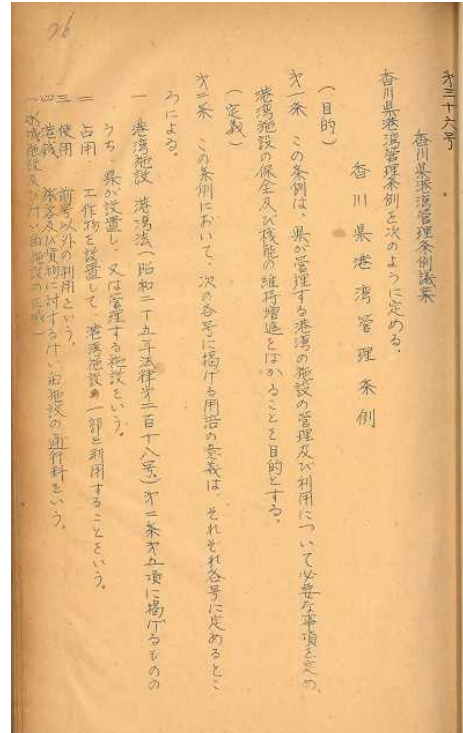 26
第三十六号
香川県港湾管理条例議案
香川県港湾管理条例を次のように定める。
香川県港湾管理条例
(目的)
第一条 この条例は、県が管理する港湾の施設の管理及び利用について必要な事項を定め、
港湾施設の保全及び機能の維持増進をはかることを目的とする。
(定義)
第二条 この条例において、次の各号に掲げる用語の意義は、それぞれ各号に定めるとこ
ろによる。
一 港湾施設 港湾法(昭和二十五年法律第二百十八号)第二条第五項に掲げるものの
うち 県が設置し、又は管理する施設をいう。
二 占用 工作物を設置して、港湾施設の一部を利用することをいう。
三 使用 前号以外の利用をいう。
四 港銭 旅客及び貨物に対するけい留施設の通行料をいう。
(水域施設及びけい留施設の